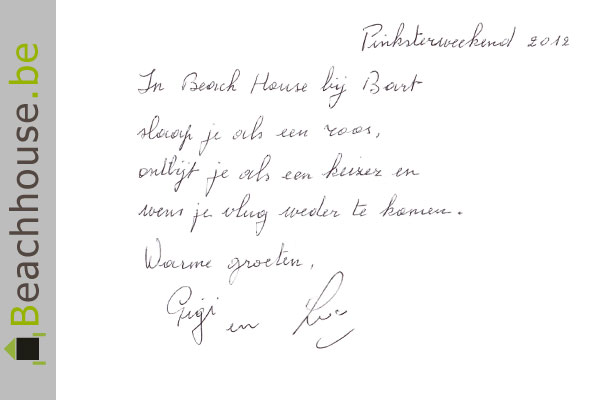 Beachhouse.be
Pinksterweekend 2012
In Beach House bij Bart
slaap je als een roos,
ontbijt je als een keizer en
wens je vlug weder te komen.
Warme groeten,
Gigi en Luc